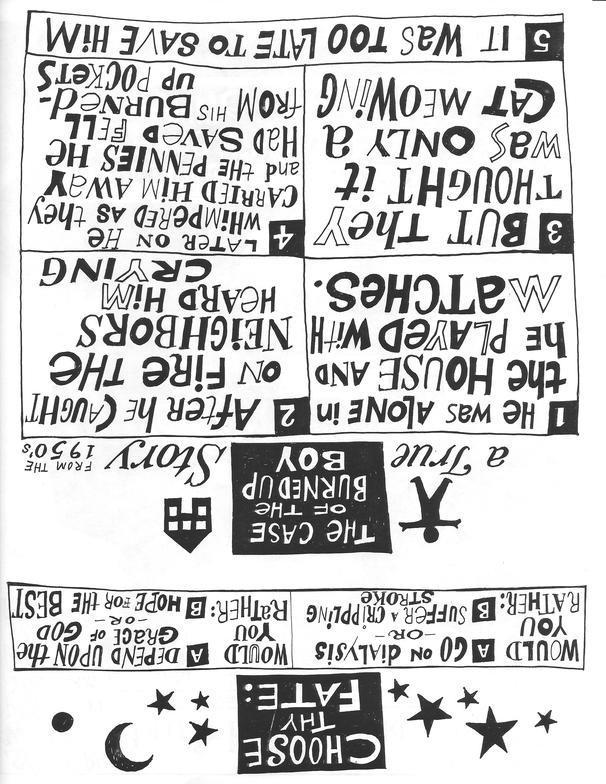 CHOOSE
THY
FATE:
WOULD
YOU
RATHER:
A GO ON dialysis
-OR-
B SUFFER A CRIPPLING
STROKE
WOULD
YOU
RATHER:
A DEPEND UPON the
GRACE OF GOD
-OR-
B HOPE FOR THE BEST
THE CASE
OF THE
BURNED UP
BOY
a True
Story
FROM THE
1950's
1 HE was ALONE in
the HOUSE AND
he PLAYED WITH
MATCHES.
2 After he CAUGHT
ON FIRE THE
NEIGHBORS
HEARD HIM
CRYING
3 BUT They
THOUGHT it
was ONLY a
CAT MEOWING
4 LATER ON HE
WHIMPERED AS they
CARRIED HIM AWAY
and THE PENNIES HE
HAD SAVED FELL
FROM HIS BURNED-
UP POCKETS
5 IT WAS TOO LATE TO SAVE HIM